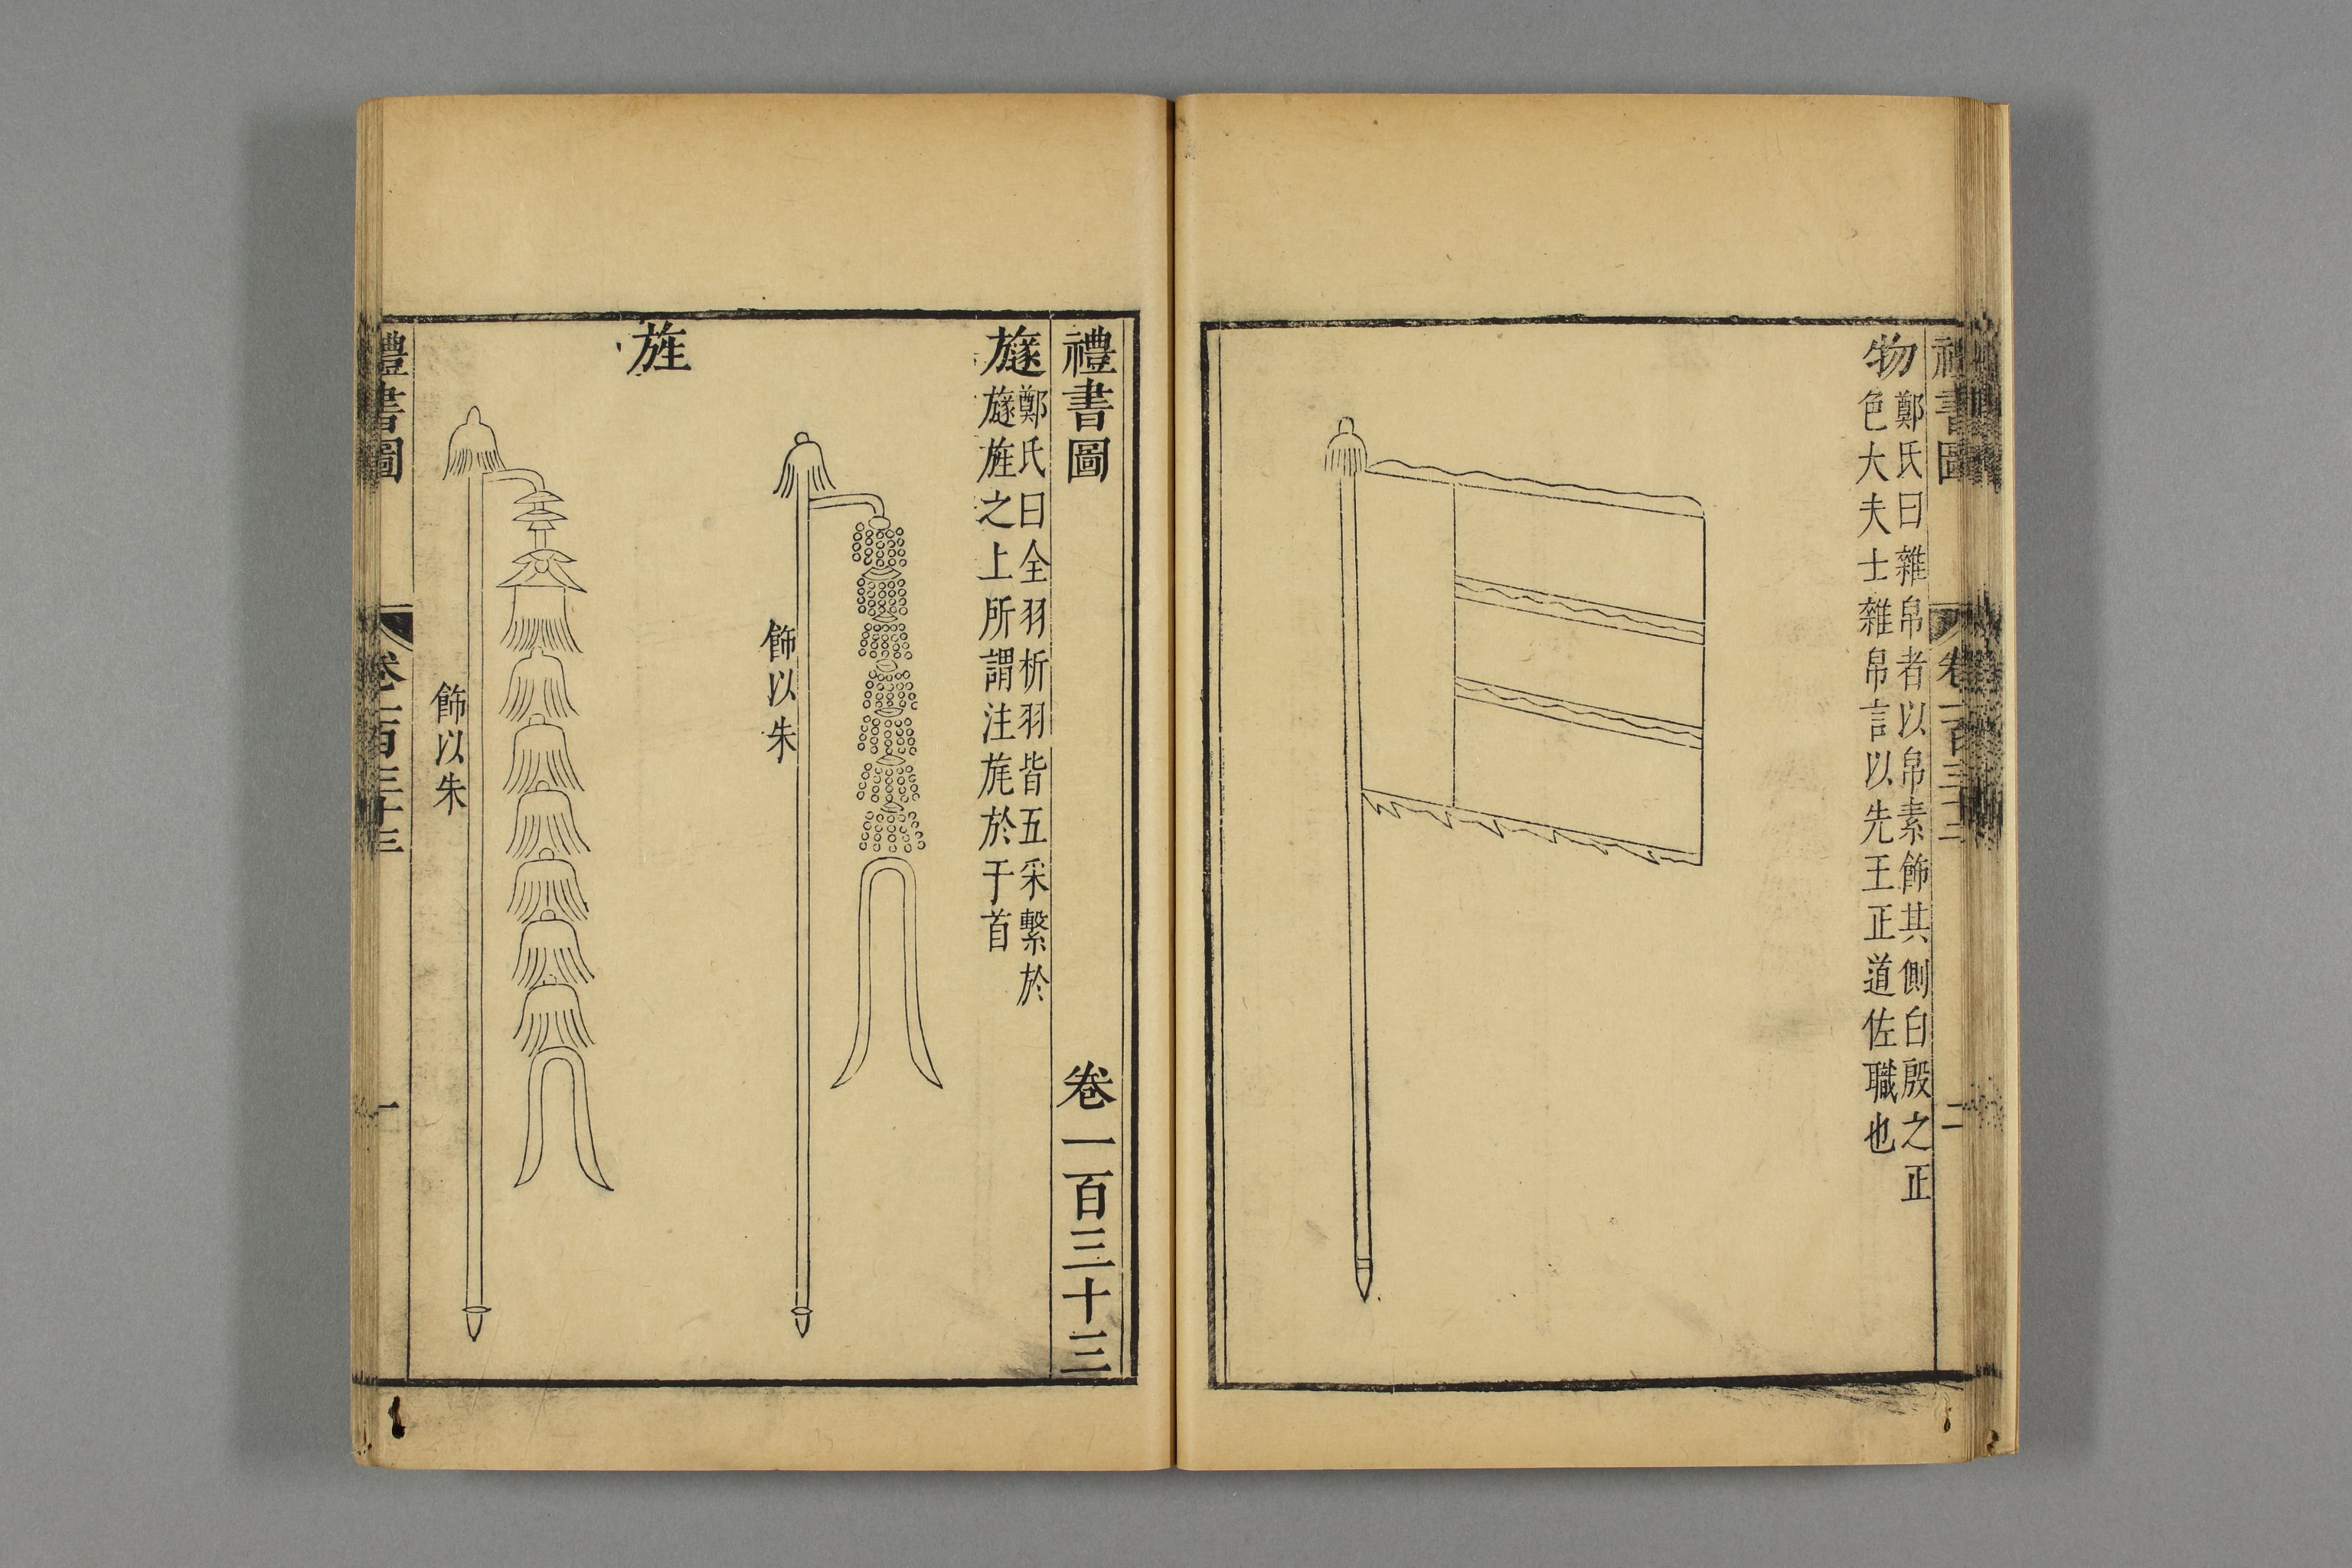 禮書圖
卷一百三十二
二
物
鄭氏曰雜帛者以帛素飾其側白殷之正
色大夫士雜帛言以先王正道佐職也
禮書圖 卷一百三十三
旞
鄭氏曰全羽析羽皆五采繫於
旞旌之上所謂注旄於于首
飾以朱
旌
飾以朱
禮書圖
卷一百三十三
一